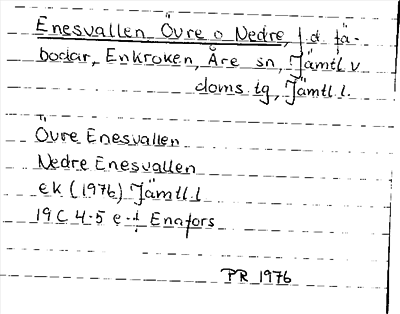 Enesvallen Övre o Nedre, f.d. fä-
bodar, Enkroken, Åre sn, Jämtl v
doms tg, Jämtl l.
Övre Enesvallen
Nedre Enesvallen
ek (1976) Jämtl l
19C 4-5 e-f Enafors
PR 1976